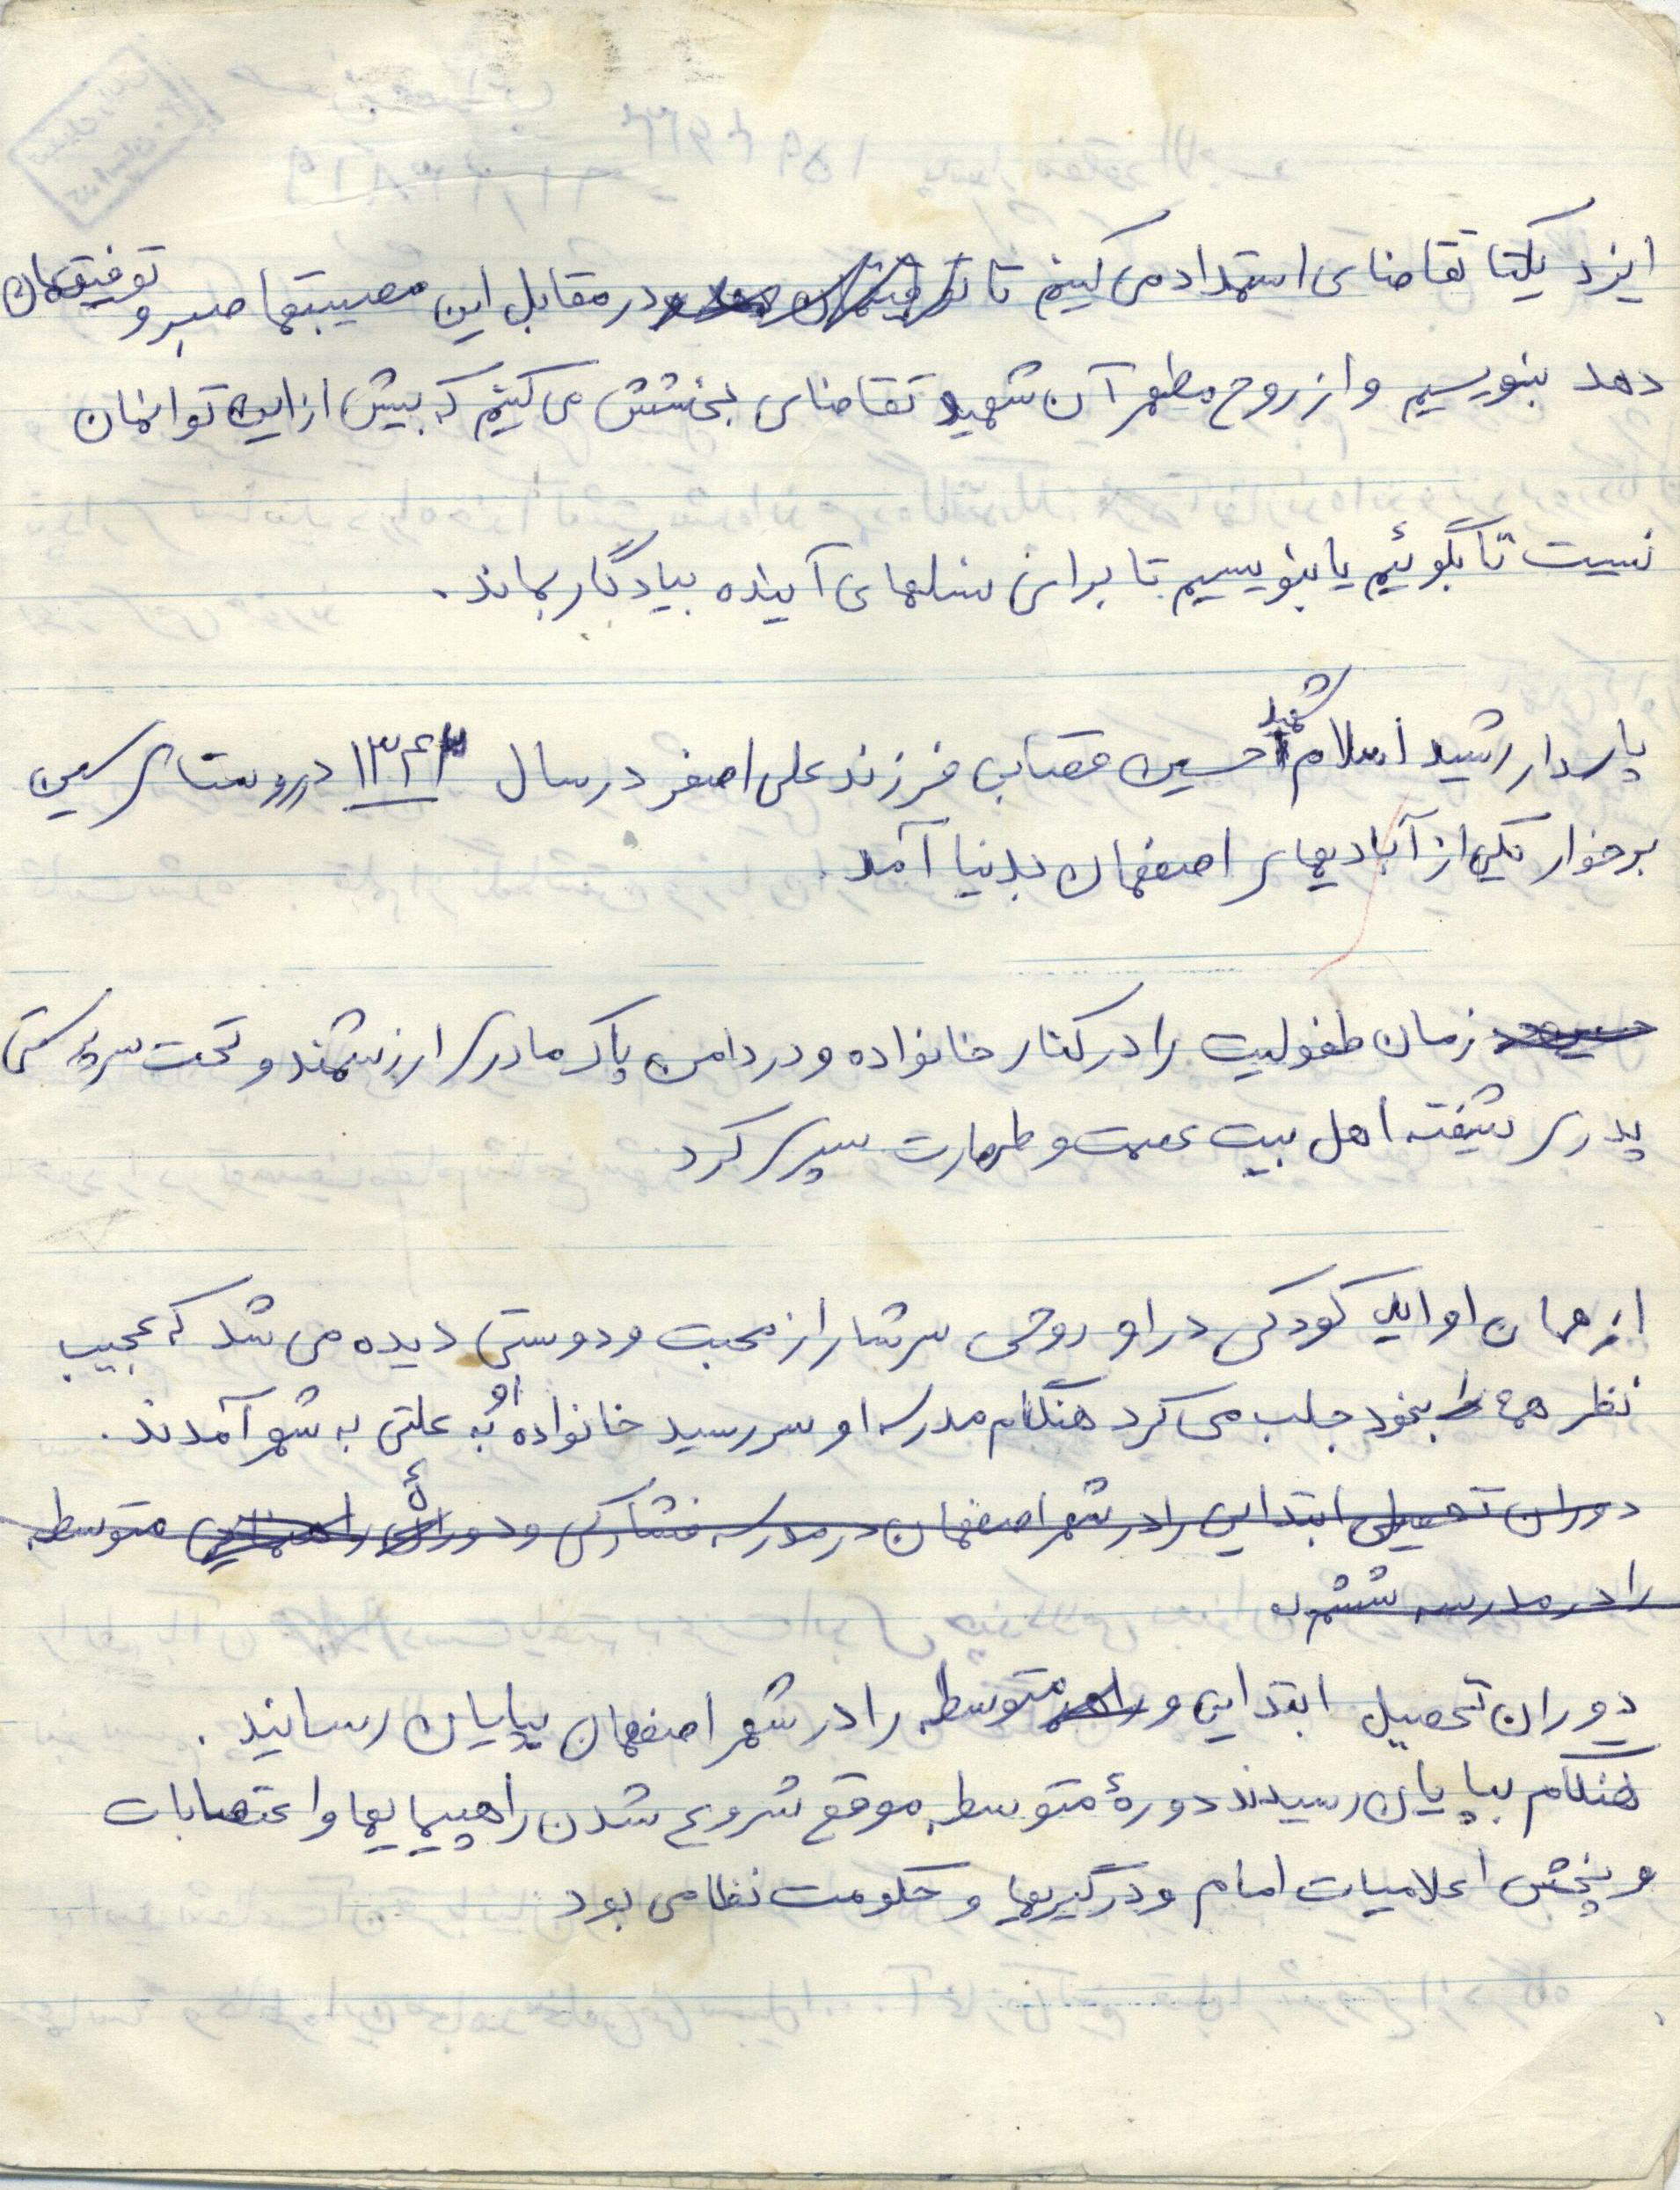 ایزد یکتا تقاضای استمداد می کنیم تا توفیقمان دهد و در مقابل این مصیبتها صبر و توفیقمان
دهد بنویسیم و از روح مطهر آن شهید تقاضای بخشش می کنیم که بیش از این توانمان
نیست تا بگوئیم یا بنویسیم تا برای نسلهای آینده بیادگار بماند.
پاسدار رشید اسلام شهید حسین قصابی فرزند علی اصغر در سال ۱۳۴۳ در روستای سین
برخوار یکی از آبادیهای اصفهان بدنیا آمد.
زمان طفولیت را در کنار خانواده و در دامن پاک مادری ارزشمند و تحت سرپرستی
پدری شیفته اهل بیت عصمت و طهارت سپری کرد
از همان اوایل کودکی در او روحی سرشار از محبت و دوستی دیده می شد که عجیب
نظر همه را بخود جلب می کرد هنگام مدرسه او سر رسید خانواده او به علتی به شهر آمدند.
دوران تحصیلی ابتدایی را در شهر اصفهان در مدرسه فشارکی و دورهٔ راهنمایی متوسطه
را در مدرسه ششم
دوران تحصیل ابتدایی و راهنم متوسطه را در شهر اصفهان بپایان رسانید.
هنگام بپایان رسیدند دورهٔ متوسطه موقع شروع شدن راهپیمایها و اعتصابات
و پخش اعلامیات امام و درگیریها و حکومت نظامی بود